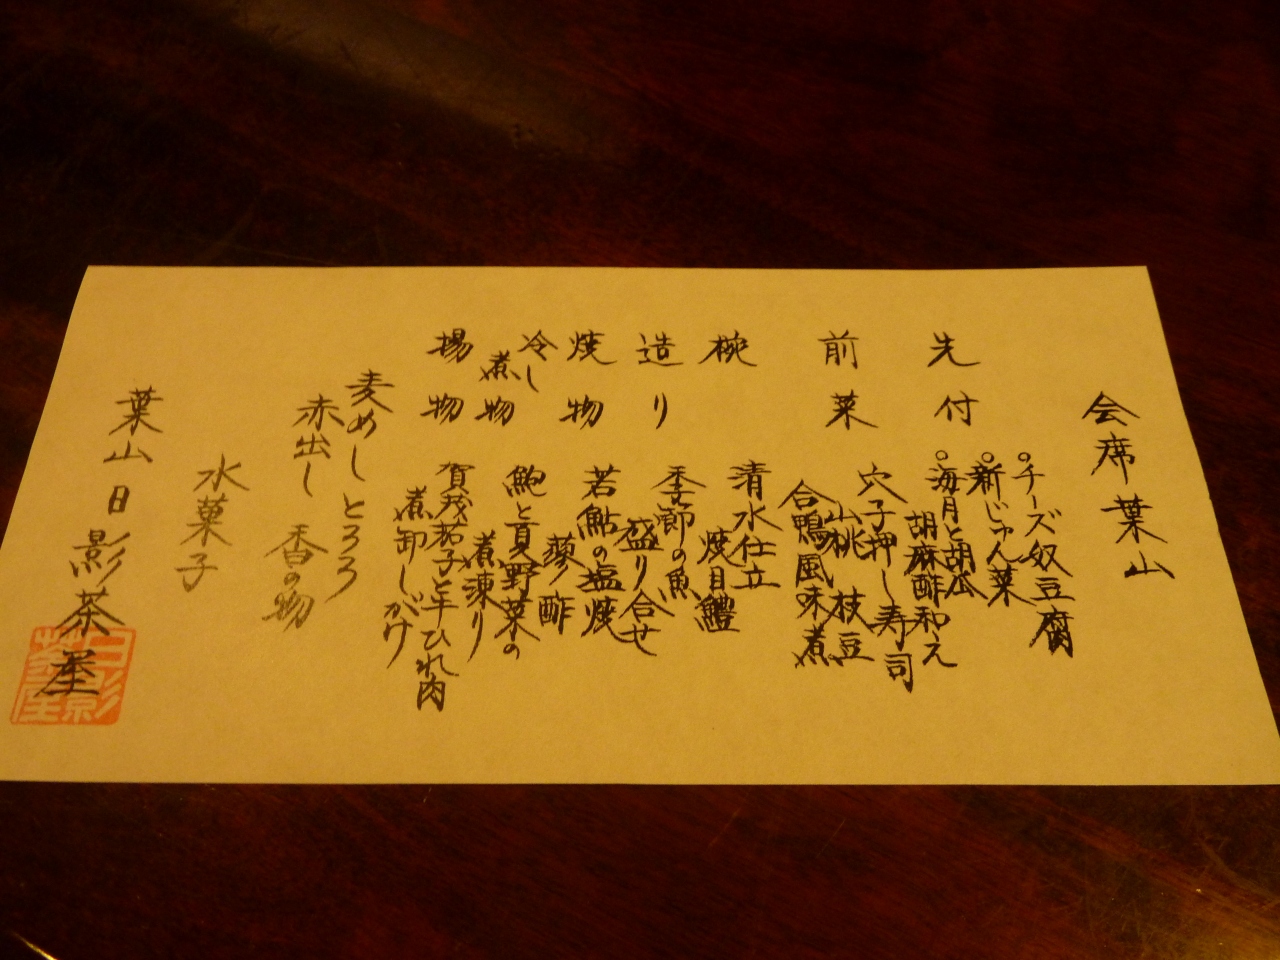 会席 葉山
先付
○チーズ奴豆腐
○新じゅん菜
○海月と胡瓜
胡麻酢和え
前菜
穴子押し寿司
山桃 枝豆
合鴨風味煮
椀
清水仕立
焼目鱧
造り
季節の魚
盛り合せ
焼物
若鮎の塩焼
蓼酢
冷し煮物
鮑と夏野菜の
煮凍り
揚物
賀茂茄子と牛ひれ肉
煮卸しがけ
麦めし とろろ
赤出し 香の物
水菓子
葉山 日影茶屋
日影茶屋